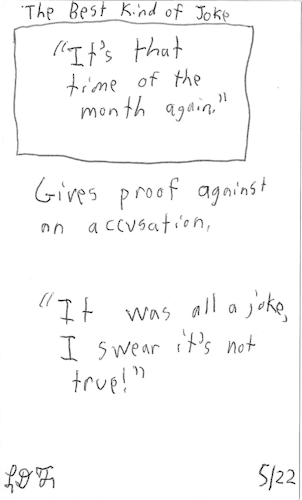 The Best Kind of Joke
"It's that
time of the
month again."
Gives proof against
an accusation.
"It was all a joke,
I swear it's not
true!"
5/22